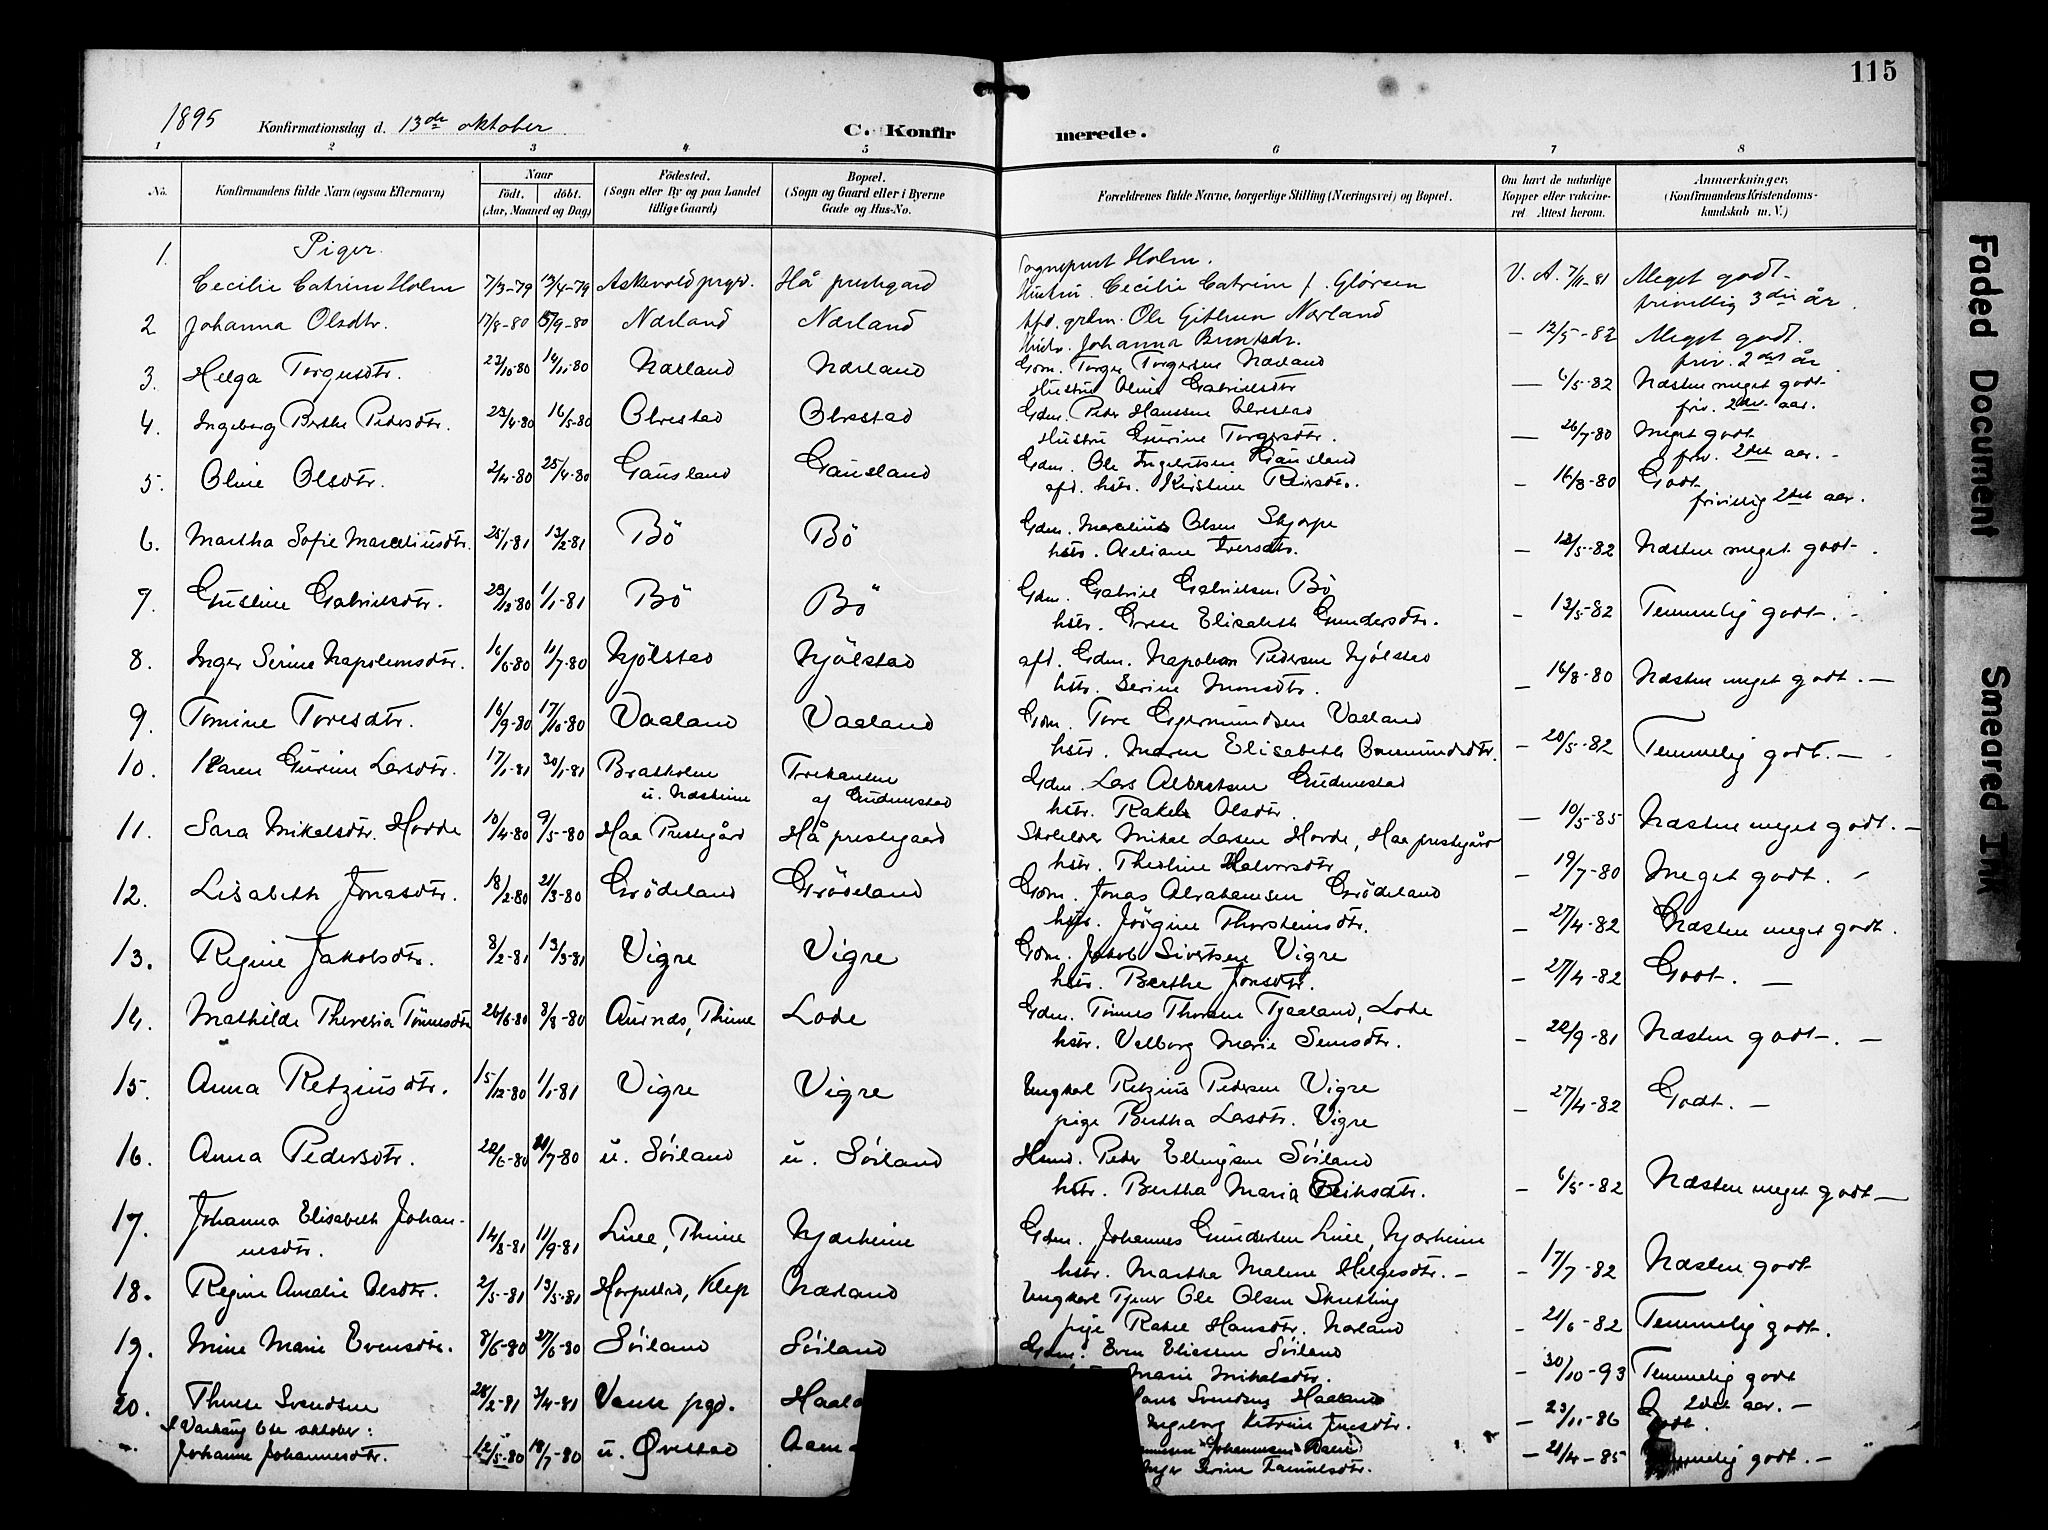 115
1895 Konfirmationsdag d. 13de oktober C. Konfirmerede.
1 2 3 4 5 6 7 8
No. Konfirmandens fulde Navn (ogsaa Efternavn) Naar født. døbt. (Aar, Maaned og Dag) Fødested. (Sogn eller By og paa Landet tillige Gaard) Bopæl. (Sogn og Gaard eller i Byerne Gade og Hus-No. Forældrenes fulde Navne, borgerlige Stilling (Næringsvei) og Bopæl. Om havt de naturlige Kopper eller vakcineret Attest herom. Anmærkninger, (Konfirmandens Kristendomskundskab m. V.)
Piger.
1. Cecilie Catrine Holm 7/3-79 13/4-79 Askevold prgd. Hå prestegard Sogneprest Holm. V. A. 7/11-81 Meget godt-
Hustru Cecilie Catrine f. Glörsen frivillig 3die år.
2 Johanna Olsdtr. 17/8-80 5/9-80 Nærland Nærland Ole Nærland - 12/5-82 Meget godt.
Johanna friv. 2det år
3. Helga Torgersdtr. 23/10-80 14/11-80 Nærland Nærland Gdm. Torger Torgersen Nærland - 6/5-82 Næsten meget godt-
Hustru Oline Gabrielsdtr friv. 2det aar.
4. Ingeborg Berthe Pedersdtr. 23/4-80 16/5-80 Obrestad Obrestad Gdm. Peder Hanssen Obrestad - 26/7-80 Meget godt
Hustru Gurine Torgersdtr. friv. 2det aar. -
5. Oline Olsdtr. 2/4-80 25/4-80 Gausland Gausland Gdm. Ole Ingebritsen Gausland - 16/8-80 Godt
afd. hstr. Kirstine frivillig 2det aar.
6. Martha Sofie Marseliusdtr. 25/1-81 13/2-81 Bö Bö Gdm. Marselius Olsen Skjorpe - 12/5-82 Næsten meget godt-.
hstr. Iversdtr.
7. Gustine Gabrielsdtr. 29/12-80 1/1-81 Bö Bö Gdm. Gabriel Gabrielsen Bö - 13/5-82 Temmelig godt-.
hstr. Grete Elisabeth Gundersdtr.
8. Inger Serine Napoleonsdtr. 16/6-80 11/7-80 Njölstad Njölstad afd. Gdm. Napoleon Pedersen Njölstad - 16/8-80 Næsten meget godt. -
hstr. Serine Monsdtr.
9. Tomine Toresdtr. 16/9-80 17/10-80 Vaaland Vaaland Gdm. Tore Gjermundsen Vaaland - 20/5-82 Temmelig godt. -
hstr. Maren Elisabeth
10. Karen Gurine Larsdtr. 17/1-81 30/1-81 Bratholen u. Næsheim af Gudmestad Gdm. Lars Albretsen Gudmestad - 10/5-85 Næsten meget godt. -
hstr. Rakel Olsdtr.
11. Sara Mikalsdtr. Hodde 10/4-80 9/5-80 Haa Prestegård Hå prestegaard Mikal Larsen Haa prestegård - 19/7-80 Meget godt. -
hstr. Theoline Halvorsdtr
12. Lisabeth Jonasdtr. 18/2-80 21/3-80 Grödeland Grödeland Gdm. Jonas Abrahamsen Grödeland - 27/4-82 Næsten meget godt.
hstr. Jörgine Thorsteinsdtr.
13. Regine Jakobsdtr. 8/2-81 13/3-81 Vigre Vigre Gdm. Jakob Sivertsen Vigre - 27/4-82 Godt. -
hstr. Berthe Jonsdtr.
14. Mathilde Theresia Tönnesdtr 26/6-80 8/8-80 Aurnes, Thime Lode Gdm. Tönnes Thorsen Tjaaland, Lode - 22/9-81 Næsten godt-. -
hstr. Valborg Marie
15. Anna Retziusdtr. 15/12-80 1/1-81 Vigre Vigre Ungkarl Retzius Pedersen Vigre - 27/4-82 Godt. -
pige Bertha Larsdtr. Vigre
16. Anna Pedersdtr. 22/6-80 21/7-80 u. Söiland u. Söiland Husmd. Peder Ellingsen Söiland - 6/5-82 Næsten meget godt -
hstr. Bertha Maria Eriksdtr.
17. Johanna Elisabeth Johannesdtr. 14/8-81 11/9-81 Linee, Thime Njærheim Gdm. Johannes Gundersen Linee, Njærheim - 17/7-82 Næsten godt
hstr. Martha Malene Helgesdtr. -
18. Regine Amalie Olsdtr. 2/5-81 13/5-81 Horpestad, Klep Nærland Ungkarl Tjener Ole Olsen Skretting - 21/6-82 Temmelig godt.
pige Rakel Hansdtr. Nærland
19. Mine Marie Evensdtr. 8/6-80 27/6-80 Söiland Söiland Gdm. Even Eliassen Söiland - 30/10-93 Temmelig godt
Marie Mikalsdtr. 2det aar. -
20. Therese Svendsen 28/2-81 3/4-81 Vanse pgd. Haala Hans Svendsen Haaland - 23/11-86 Godt.
Ingeborg Katrine
I Varhaug 6te oktober:
Johanne Johannesdtr. 12/5-80 18/7-80 u. Qvestad - 21/4-85 Temmelig godt. -
Inger Serine
Faded Document
Smeared Ink